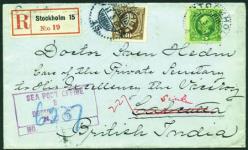 R
Stockholm 15
No 19
Doctor Sven Hedin
Care of the Private Secretary
to His Excellency the Viceroy
Simla
Calcutta
British India
SEA POST OFFICE
NO.